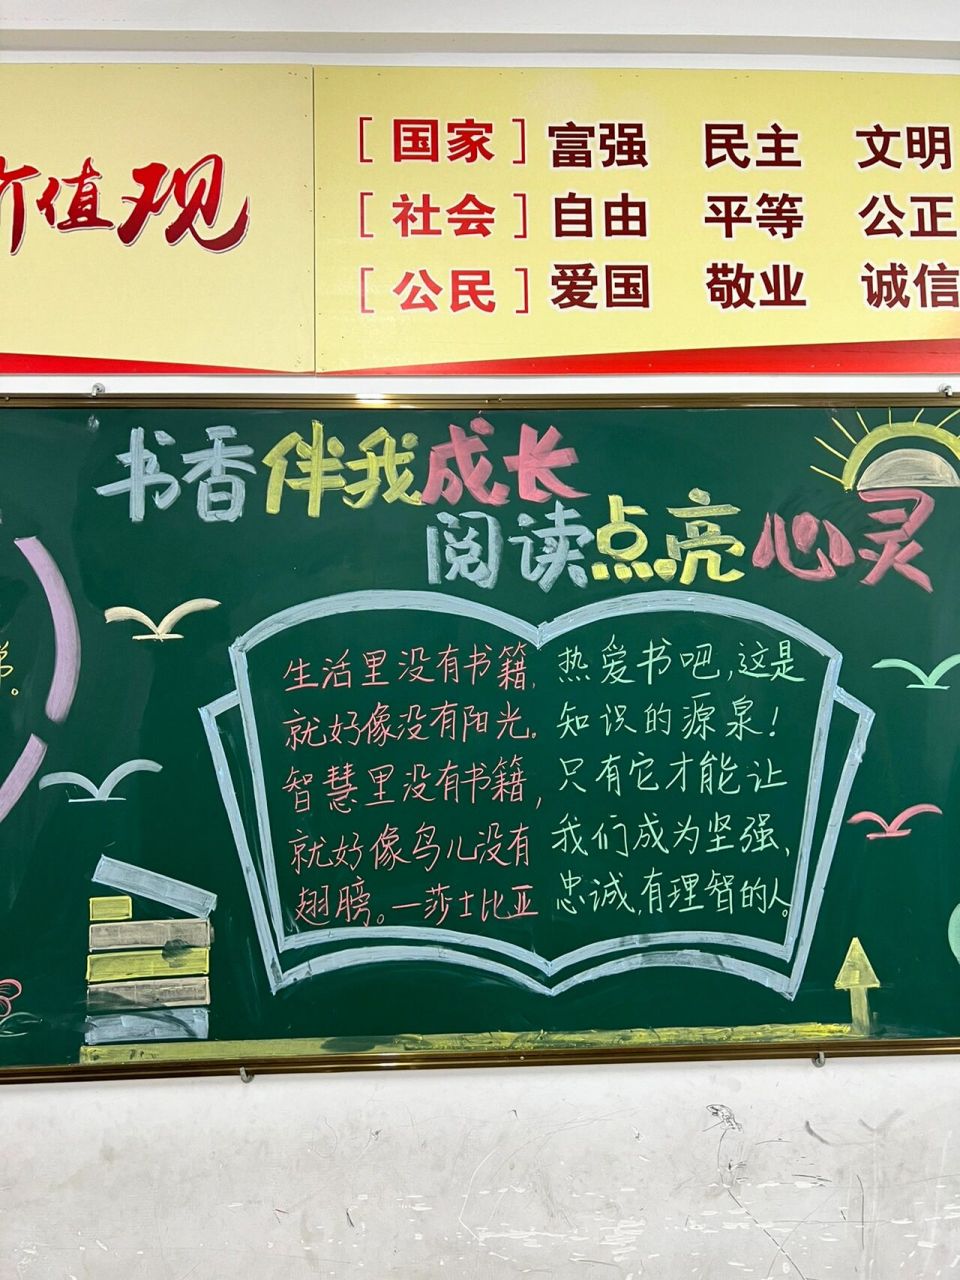 价值观
[国家] 富强 民主 文明
[社会] 自由 平等 公正
[公民] 爱国 敬业 诚信
书香伴我成长
阅读点亮心灵
生活里没有书籍,
就好像没有阳光。
智慧里没有书籍,
就好像鸟儿没有
翅膀。—莎士比亚
热爱书吧,这是
知识的源泉!
只有它才能让
我们成为坚强,
忠诚,有理智的人。